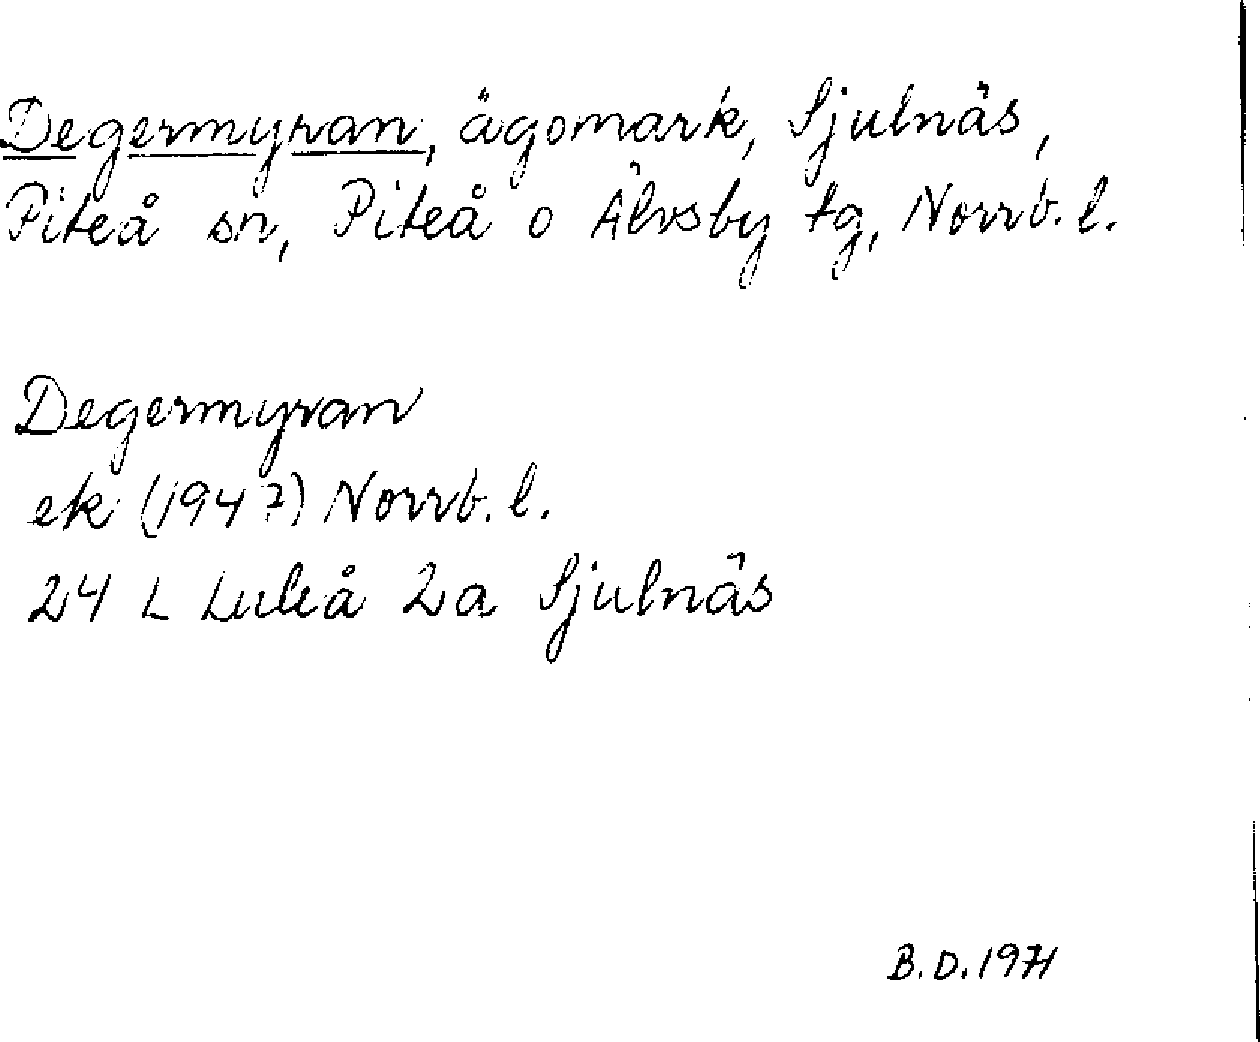 Degermyran, ägomark, Sjulnäs,
Piteå sn, Piteå o Älvsby tg, Norrb. l.
Degermyran
ek (1947) Norrb. l.
24 L Luleå 2a Sjulnäs
B.D. 1971